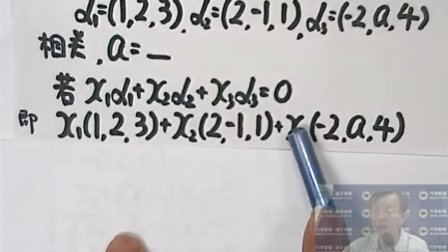 α₁=(1,2,3),α₂=(2,-1,1),α₃=(-2,a,4)
相关,a=__
若 x₁α₁+x₂α₂+x₃α₃=0
即 x₁(1,2,3)+x₂(2,-1,1)+x (-2,a,4)